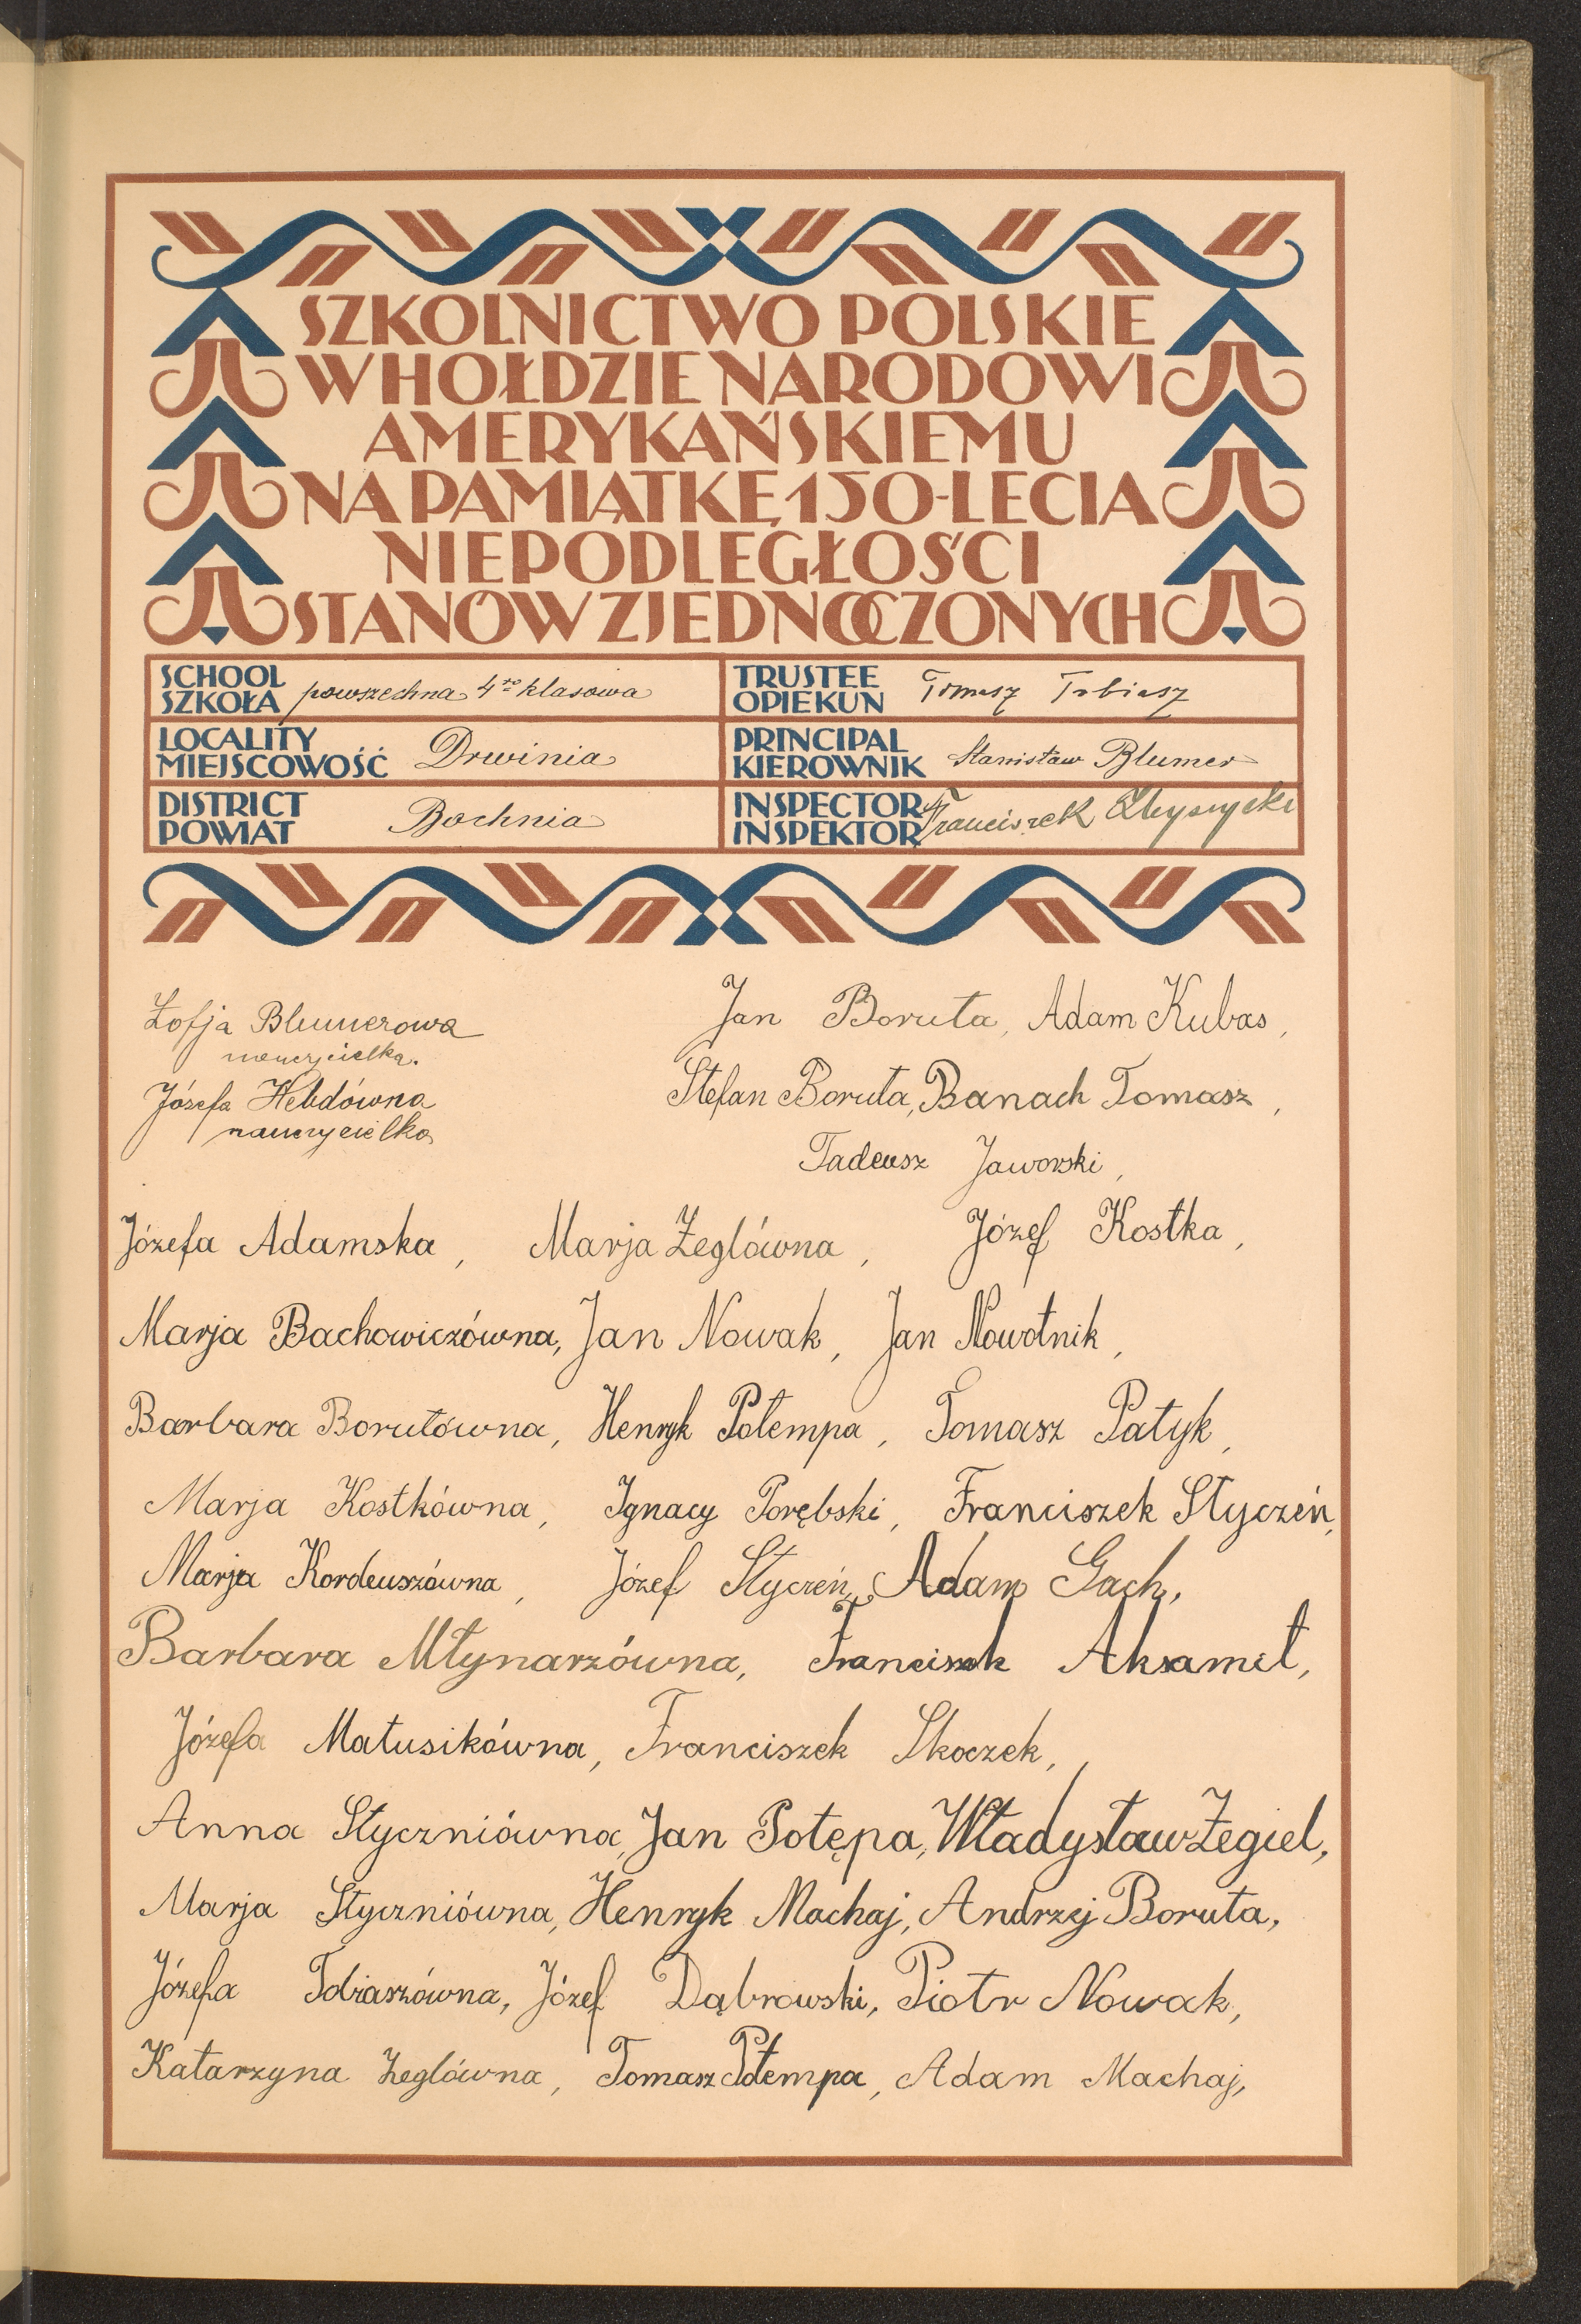 SZKOLNICTWO POLSKIE
W HOŁDZIE NARODOWI
AMERYKAŃSKIEMU
NA PAMIĄTKĘ 150-LECIA
NIEPODLEGŁOŚCI
STANÓW ZJEDNOCZONYCH
SCHOOL
SZKOŁA powszechna 4ro klasowa
TRUSTEE
OPIEKUN Tomasz Tobiasz
LOCALITY
MIEJSCOWOŚĆ Drwinia
PRINCIPAL
KIEROWNIK Stanisław Blumer
DISTRICT
POWIAT Bochnia
INSPECTOR
INSPEKTOR Franciszek
Zofja Blumerowa
nauczycielka.
Józefa Hebdówna
nauczycielka
Jan Boruta, Adam Kubas,
Stefan Boruta, Banach Tomasz,
Tadeusz Jaworski,
Józefa Adamska, Marja Żeglówna, Józef Kostka,
Marja Bachowiczówna, Jan Nowak, Jan Nowotnik,
Barbara Borutówna, Henryk Potempa, Tomasz Patyk,
Marja Kostkówna, Ignacy Porębski, Franciszek Styczeń,
Marja Kordeuszówna, Józef Styczeń, Adam Gach,
Barbara Młynarzówna, Franciszek Aksamit,
Józefa Matusikówna, Franciszek Skoczek,
Anna Styczniówna, Jan Potępa, Władysław Żegiel,
Marja Styczniówna, Henryk Machaj, Andrzej Boruta,
Józefa Tobiaszówna, Józef Dąbrowski, Piotr Nowak,
Katarzyna Żeglówna, Tomasz Potempa, Adam Machaj,